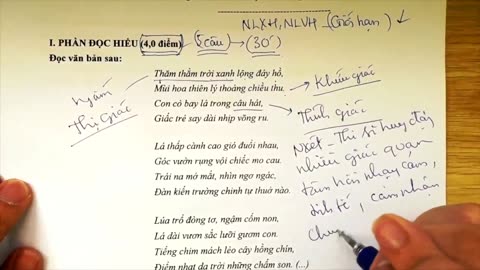 NLXH, NLVH - (Giới hạn)
I. PHẦN ĐỌC HIỂU (4,0 điểm) 5 câu → (30')
Đọc văn bản sau:
Thăm thẳm trời xanh lộng đáy hồ,
Mùi hoa thiên lý thoảng chiều thu.
Con cò bay lả trong câu hát,
Giấc trẻ say dài nhịp võng ru.
Lá thấp cành cao gió đuổi nhau,
Góc vườn rụng vội chiếc mo cau.
Trái na mở mắt, nhìn ngơ ngác,
Đàn kiến trường chinh tự thuở nào.
Lúa trổ đòng tơ, ngậm cốm non,
Lá dài vươn sắc lưỡi gươm con.
Tiếng chim mách lẻo cây hồng chín,
Điểm nhạt da trời những chấm son. (...)
ngắm
Thị giác
Khứu giác
Thính giác
Nxét - Thi sĩ huy động
nhiều giác quan
tâm hồn nhạy cảm,
tinh tế, cảm nhận
chuy